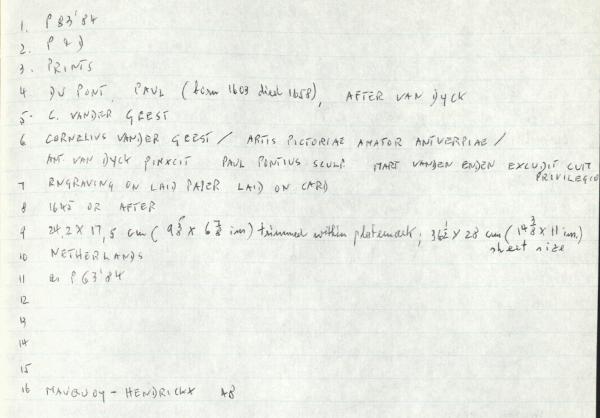 1. P 83'84
2. P 4 D
3. PRINTS
4 DU PONT, PAUL (born 1603 died 1658), AFTER VAN DYCK
5. C. VANDER GEEST
6 CORNELIUS VANDER GEEST / ARTIS PICTORIAE AMATOR ANTVERPIAE /
ANT. VAN DYCK PINXCIT PAUL PONTIUS SCULP MART VANDEN ENDEN EXCUDIT CUM
PRIVILEGIO
7 ENGRAVING ON LAID PAPER LAID ON CARD
8 1645 OR AFTER
9 24,2 X 17,5 cm ( 9 5/8 X 6 7/8 ins) trimmed within platemark; 36 1/2 X 28 cm ( 14 3/8 X 11 ins.)
sheet size
10 NETHERLANDS
11 as P 63'84
12
13
14
15
16 MAUQUOY-HENDRICKX